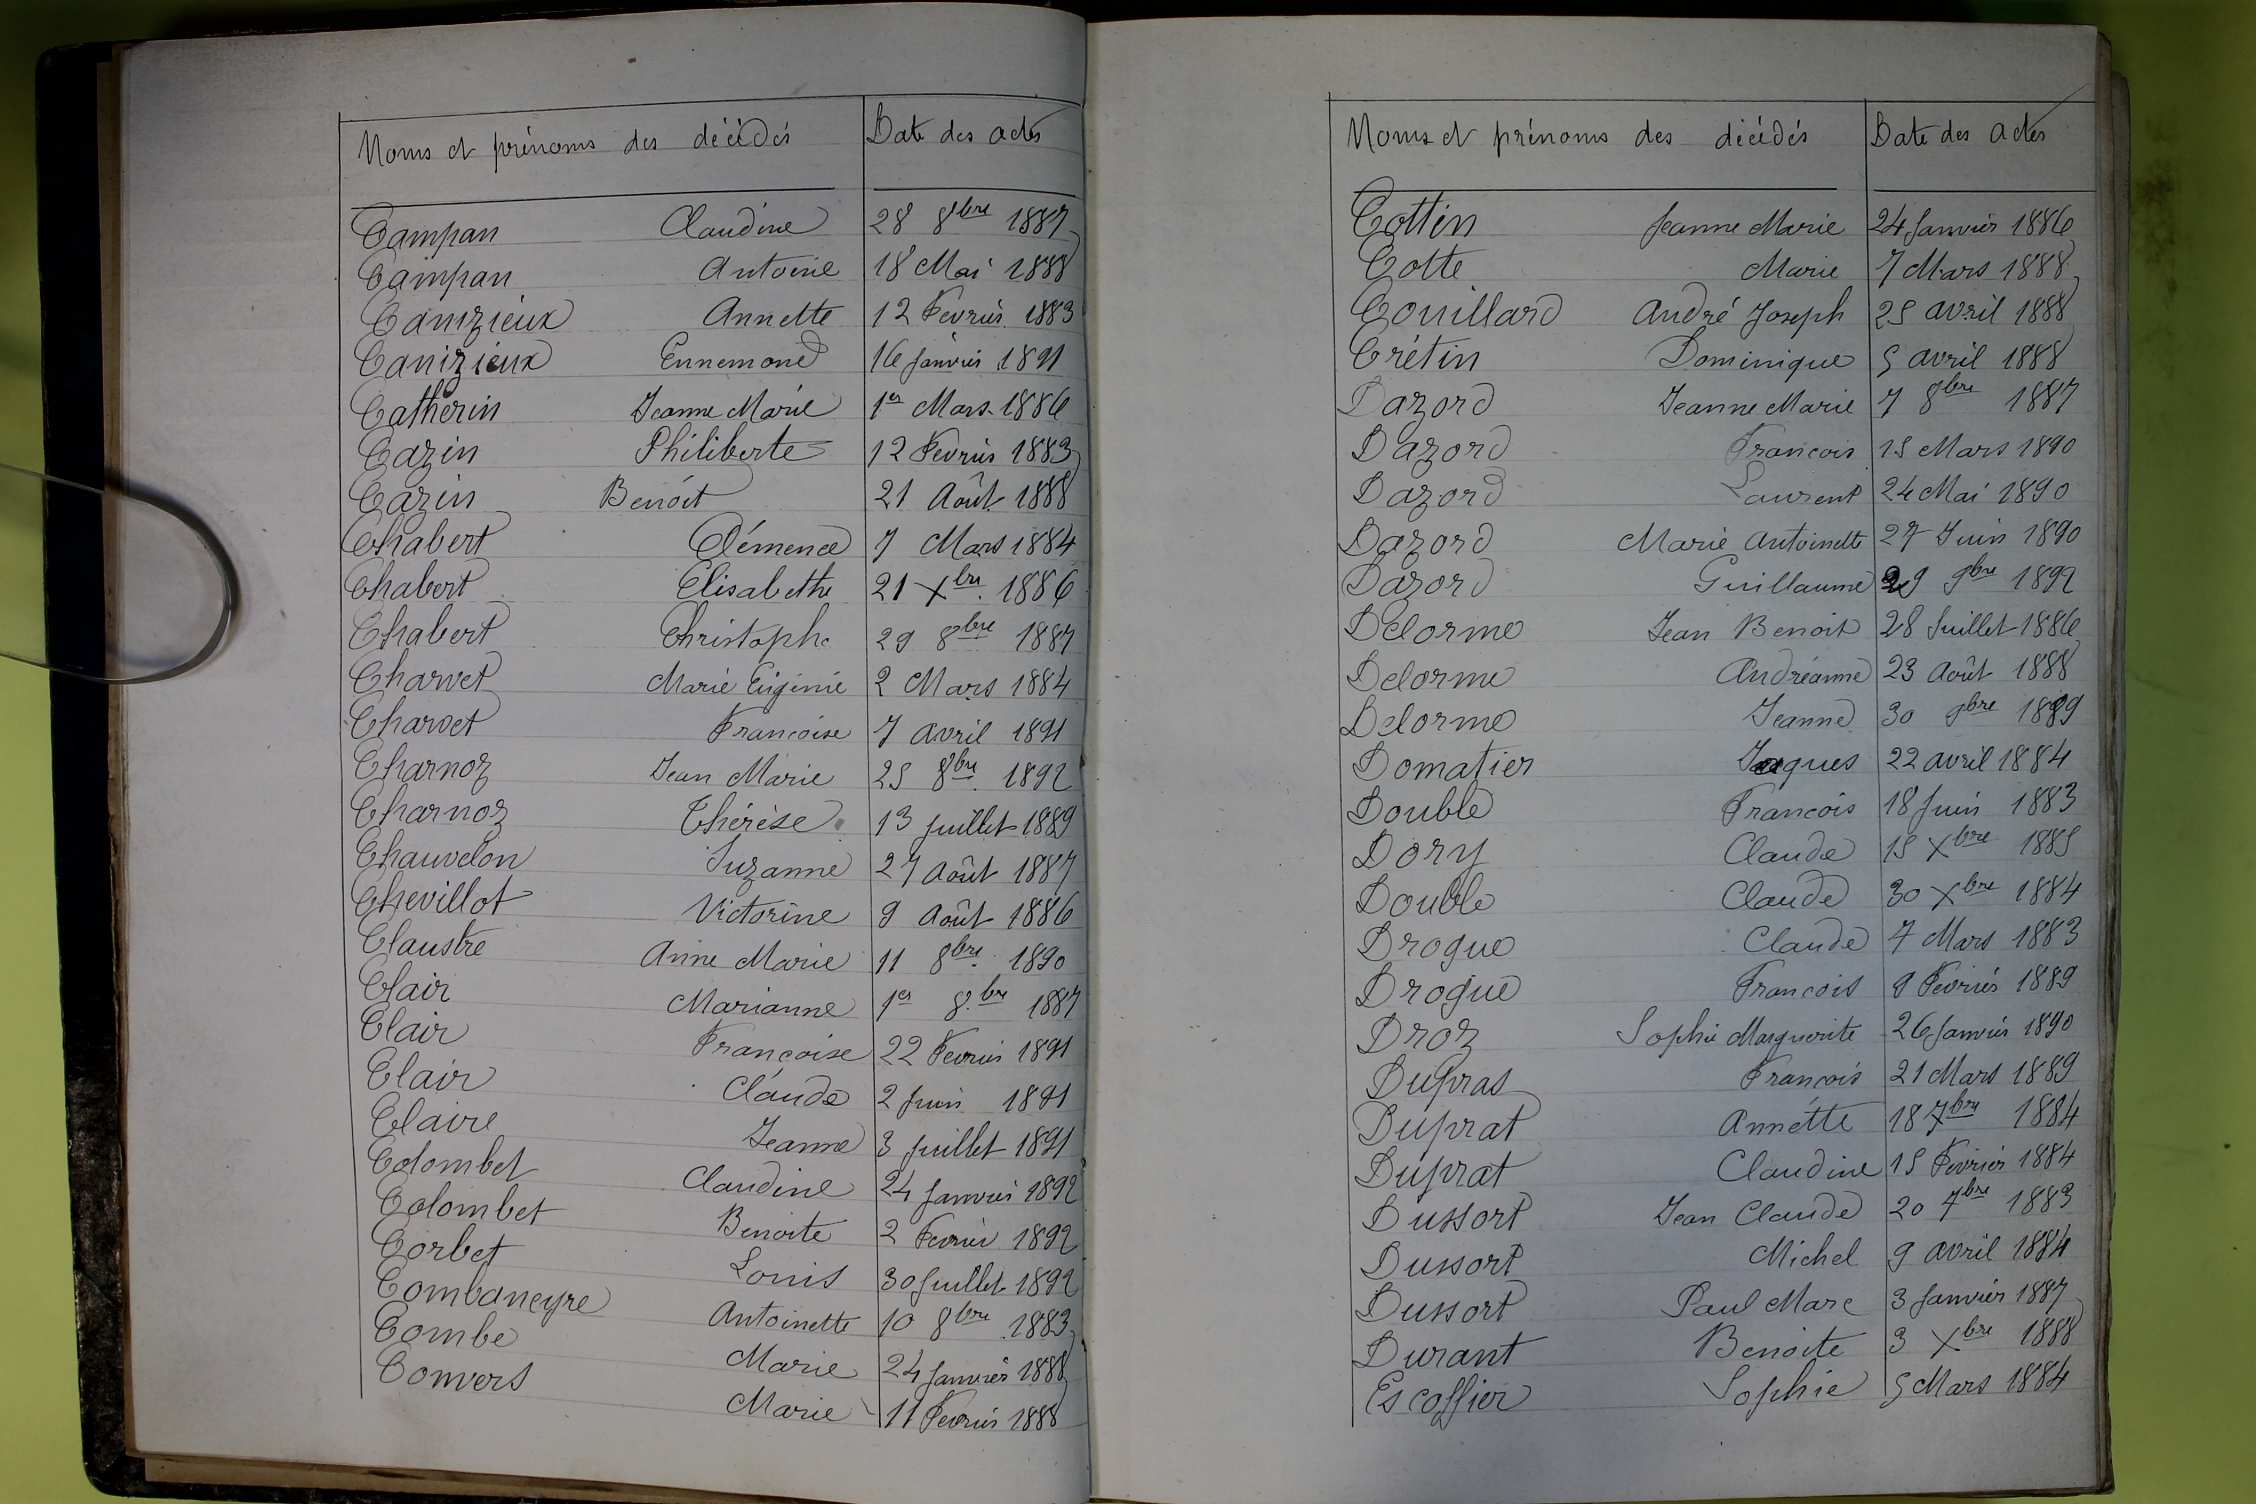 Noms et prénoms des décédés Date des actes
Campan Claudine 28 8bre 1887
Campan Antoine 18 Mai 1888
Canizieux Annette 12 Fevrier 1883
Canizieux Ennemond 16 Janvier 1891
Catherin Jeanne Marie 1er Mars 1886
Cazin Philiberte 12 Fevrier 1883
Cazin Benoit 21 Août 1888
Chabert Clémence 7 Mars 1884
Chabert Elisabeth 21 Xbre 1886
Chabert Christophe 29 8bre 1887
Charvet Marie Eugénie 2 Mars 1884
Charvet Françoise 7 avril 1891
Charnoz Jean Marie 25 8bre 1892
Charnoz Thérèse 13 Juillet 1889
Chauvelon Suzanne 27 Août 1887
Chevillot Victorine 9 Août 1886
Claustre Anne Marie 11 8bre 1890
Clair Marianne 1er 8bre 1887
Clair Françoise 22 Fevrier 1891
Clair Claude 2 Juin 1891
Claire Jeanne 3 Juillet 1891
Colombet Claudine 24 Janvier 1892
Colombet Benoite 2 Fevrier 1892
Corbet Louis 30 Juillet 1892
Combaneyre Antoinette 10 8bre 1883
Combe Marie 24 Janvier 1888
Convers Marie 11 Fevrier 1888
Noms et prénoms des décédés Date des actes
Cottin Jeanne Marie 24 Janvier 1886
Cotte Marie 7 Mars 1888
Couillard André Joseph 25 avril 1888
Crétin Dominique 5 avril 1888
Dazord Jeanne Marie 7 8bre 1887
Dazord François 15 Mars 1890
Dazord Laurent 24 Mai 1890
Dazord Marie Antoinette 27 Juin 1890
Dazord Guillaume 29 9bre 1892
Delorme Jean Benoit 28 Juillet 1886
Delorme Andréanne 23 Août 1888
Delorme Jeanne 30 9bre 1889
Domatier Jaques 22 avril 1884
Double François 18 Juin 1883
Dory Claude 15 Xbre 1885
Double Claude 30 Xbre 1884
Drogue Claude 7 Mars 1883
Drogue François 9 Février 1889
Droz Sophie Marguerite 26 Janvier 1890
Dupras François 21 Mars 1889
Duprat Annette 18 7bre 1884
Duprat Claudine 15 Février 1884
Dussort Jean Claude 20 7bre 1883
Dussort Michel 9 avril 1884
Dussort Paul Marc 3 Janvier 1887
Durant Benoite 3 Xbre 1888
Escoffier Sophie 5 Mars 1884